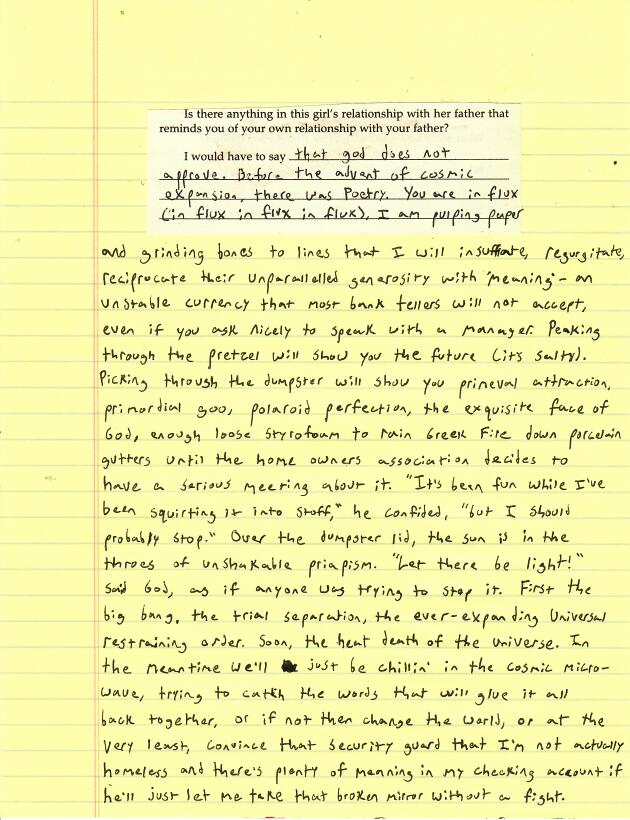 Is there anything in this girl's relationship with her father that
reminds you of your own relationship with your father?
I would have to say that god does not
approve. Before the advent of cosmic
expansion, there was Poetry. You are in flux
(in flux in flux in flux), I am pulping paper
and grinding bones to lines that I will insufflate, regurgitate,
reciprocate their unparallelled generosity with 'meaning' - an
unstable currency that most bank tellers will not accept,
even if you ask nicely to speak with a manager. Peaking
through the pretzel will show you the future (it's salty).
Picking through the dumpster will show you primeval attraction,
primordial goo, polaroid perfection, the exquisite face of
God, enough loose styrofoam to rain Greek Fire down porcelain
gutters until the home owners association decides to
have a serious meeting about it. "It's been fun while I've
been squirting it into stuff," he confided, "but I should
probably stop." Over the dumpster lid, the sun is in the
throes of unshakable priapism. "Let there be light!"
said God, as if anyone was trying to stop it. First the
big bang, the trial separation, the ever-expanding universal
restraining order. Soon, the heat death of the universe. In
the meantime we'll just be chillin' in the cosmic micro-
wave, trying to catch the words that will glue it all
back together, or if not then change the world, or at the
very least, convince that security guard that I'm not actually
homeless and there's plenty of meaning in my checking account if
he'll just let me take that broken mirror without a fight.